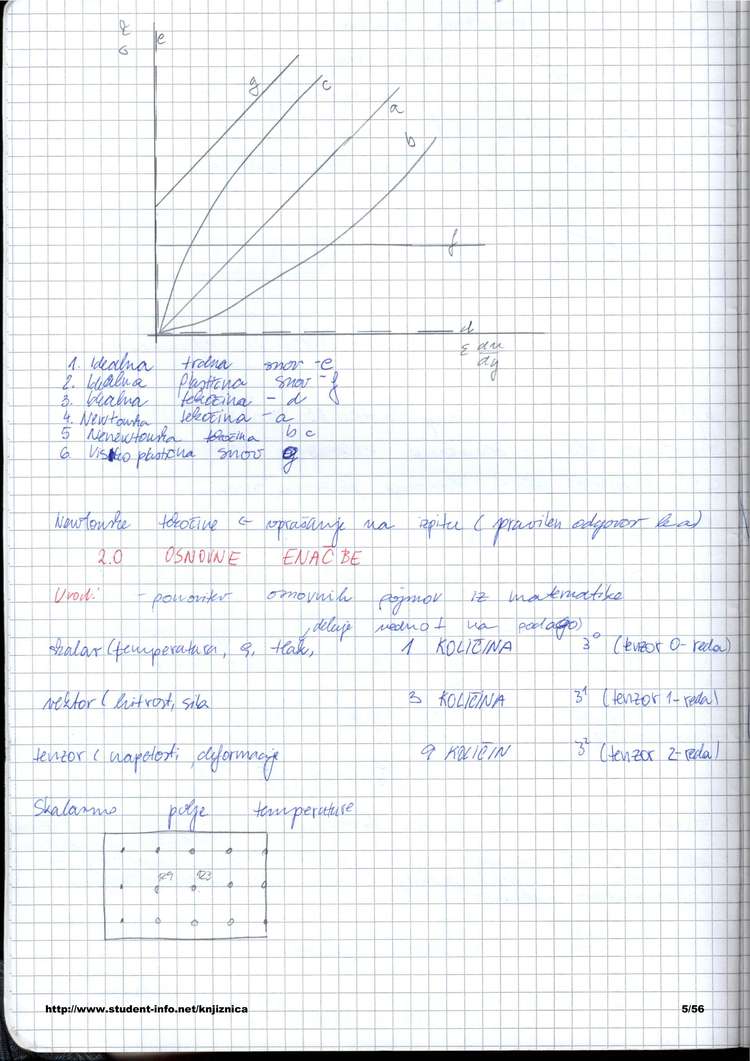 τ
σ
e
g
c
a
b
f
d
ε du/dy
1. Idealna trdna snov - e
2. Idealna plastična snov - f
3. Idealna tekočina - d
4. Newtonska tekočina - a
5 Nenewtonska tekočina b c
6 Viskoplastična snov g
Newtonske tekočine ← vprašanje na izpitu (pravilen odgovor le a)
2.0 OSNOVNE ENAČBE
Uvod: - ponovitev osnovnih pojmov iz matematike
deluje vedno ⊥ na podlago)
skalar (temperatura, ρ, tlak, 1 KOLIČINA 3⁰ (tenzor 0-reda)
vektor (hitrost, sila 3 KOLIČINA 3¹ (tenzor 1-reda)
tenzor (napetosti, deformacije 9 KOLIČIN 3² (tenzor 2-reda)
Skalarno polje temperature
http://www.student-info.net/knjiznica
5/56